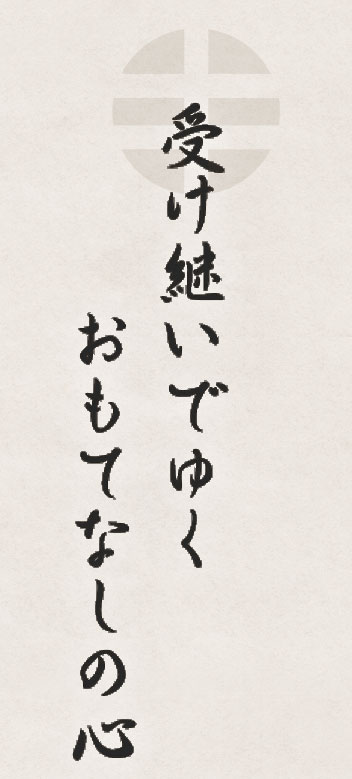 受け継いでゆく
おもてなしの心